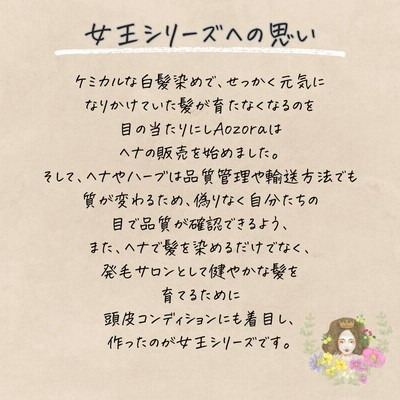 女王シリーズへの思い
ケミカルな白髪染めで、せっかく元気に
なりかけていた髪が育たなくなるのを
目の当たりにしAozoraは
ヘナの販売を始めました。
そして、ヘナやハーブは品質管理や輸送方法でも
質が変わるため、偽りなく自分たちの
目で品質が確認できるよう、
また、ヘナで髪を染めるだけでなく、
発毛サロンとして健やかな髪を
育てるために
頭皮コンディションにも着目し、
作ったのが女王シリーズです。